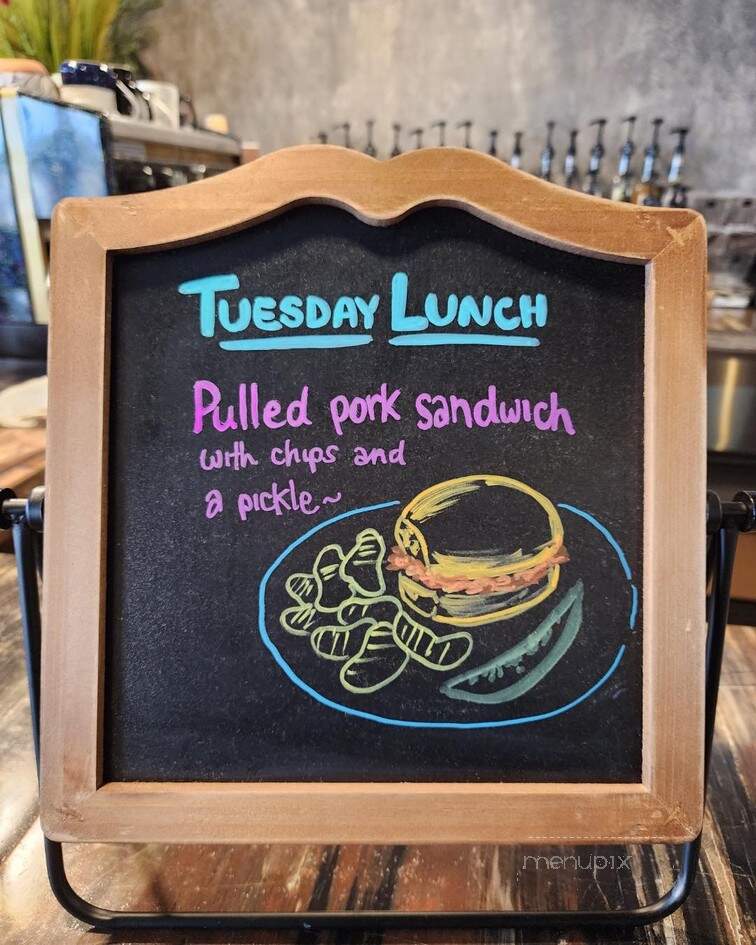 TUESDAY LUNCH
Pulled pork sandwich
with chips and
a pickle~
menupix